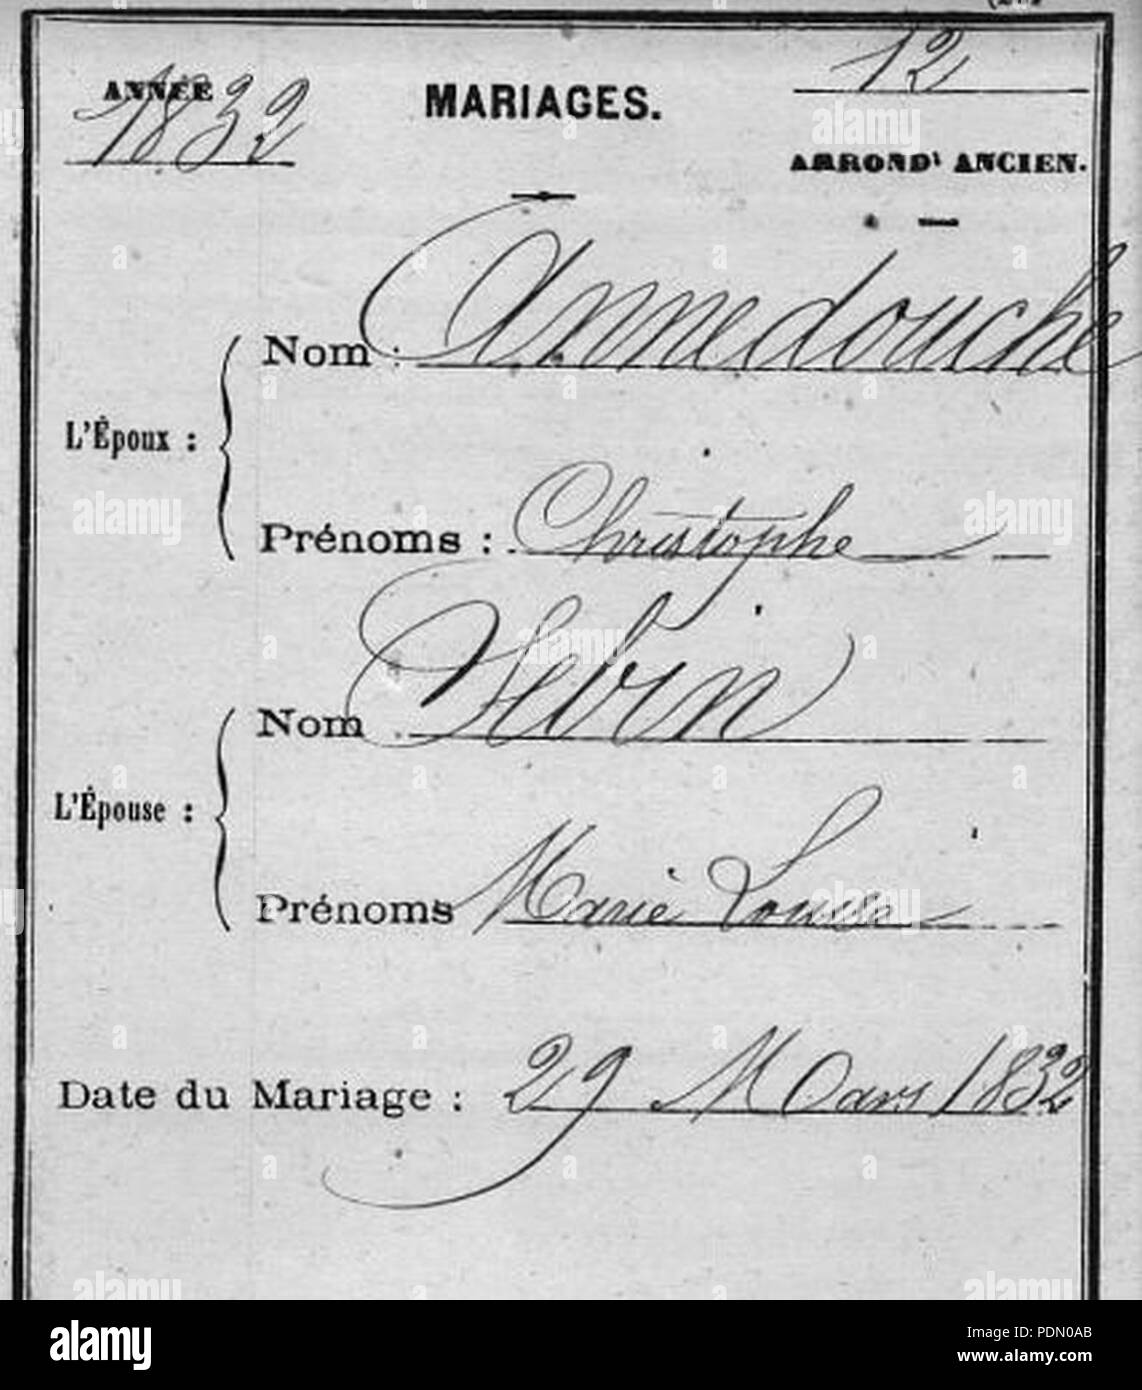 12
ANNÉE
1832
MARIAGES.
ARRONDt ANCIEN.
Nom : Annedouche
L'Époux :
Prénoms : Christophe
Nom : Hebin
L'Épouse :
Prénoms Marie Louise
Date du Mariage : 29 Mars 1832
alamy
Image ID: PDN0AB
www.alamy.com